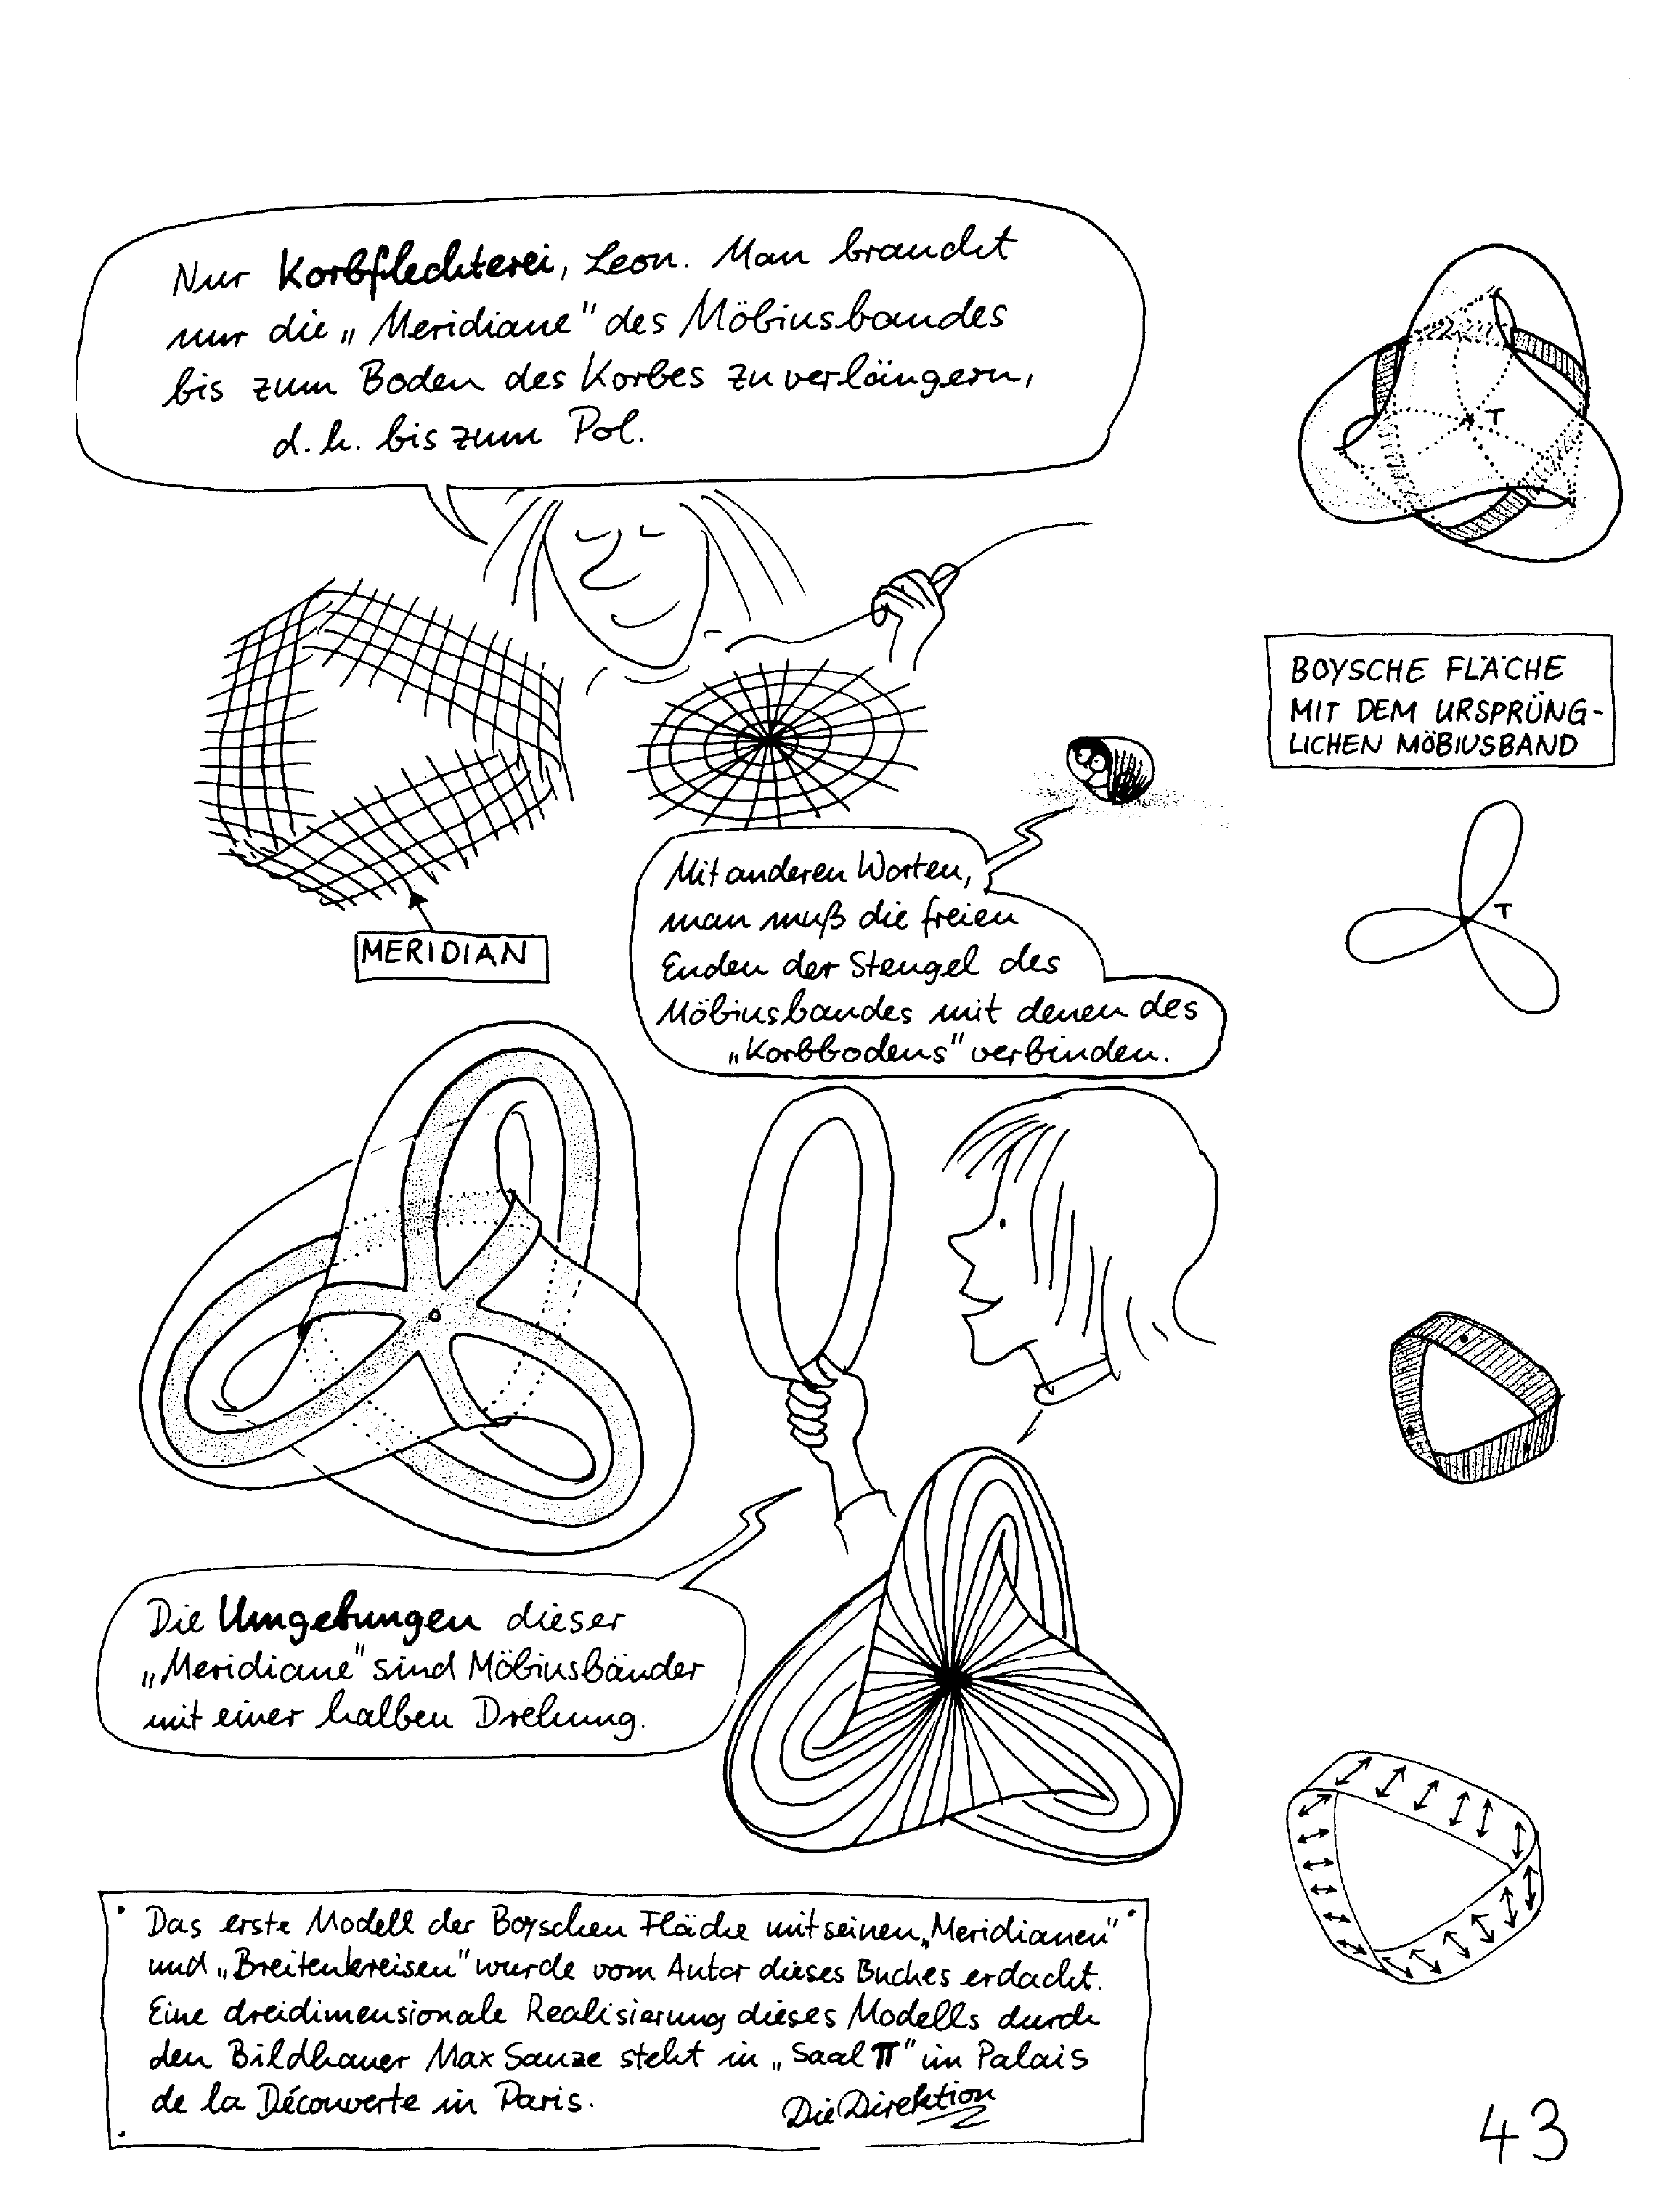 Nur Korbflechterei, Leon. Man braucht
nur die „Meridiane" des Möbiusbandes
bis zum Boden des Korbes zu verlängern,
d.h. bis zum Pol.
T
BOYSCHE FLÄCHE
MIT DEM URSPRÜNG-
LICHEN MÖBIUSBAND
T
Mit anderen Worten,
man muß die freien
Enden der Stengel des
Möbiusbandes mit denen des
„Korbbodens" verbinden.
MERIDIAN
Die Umgebungen dieser
„Meridiane" sind Möbiusbänder
mit einer halben Drehung.
Das erste Modell der Boyschen Fläche mit seinen „Meridianen"
und „Breitenkreisen" wurde vom Autor dieses Buches erdacht.
Eine dreidimensionale Realisierung dieses Modells durch
den Bildhauer Max Sauze steht in „Saal π" im Palais
de la Découverte in Paris.
Die Direktion
43